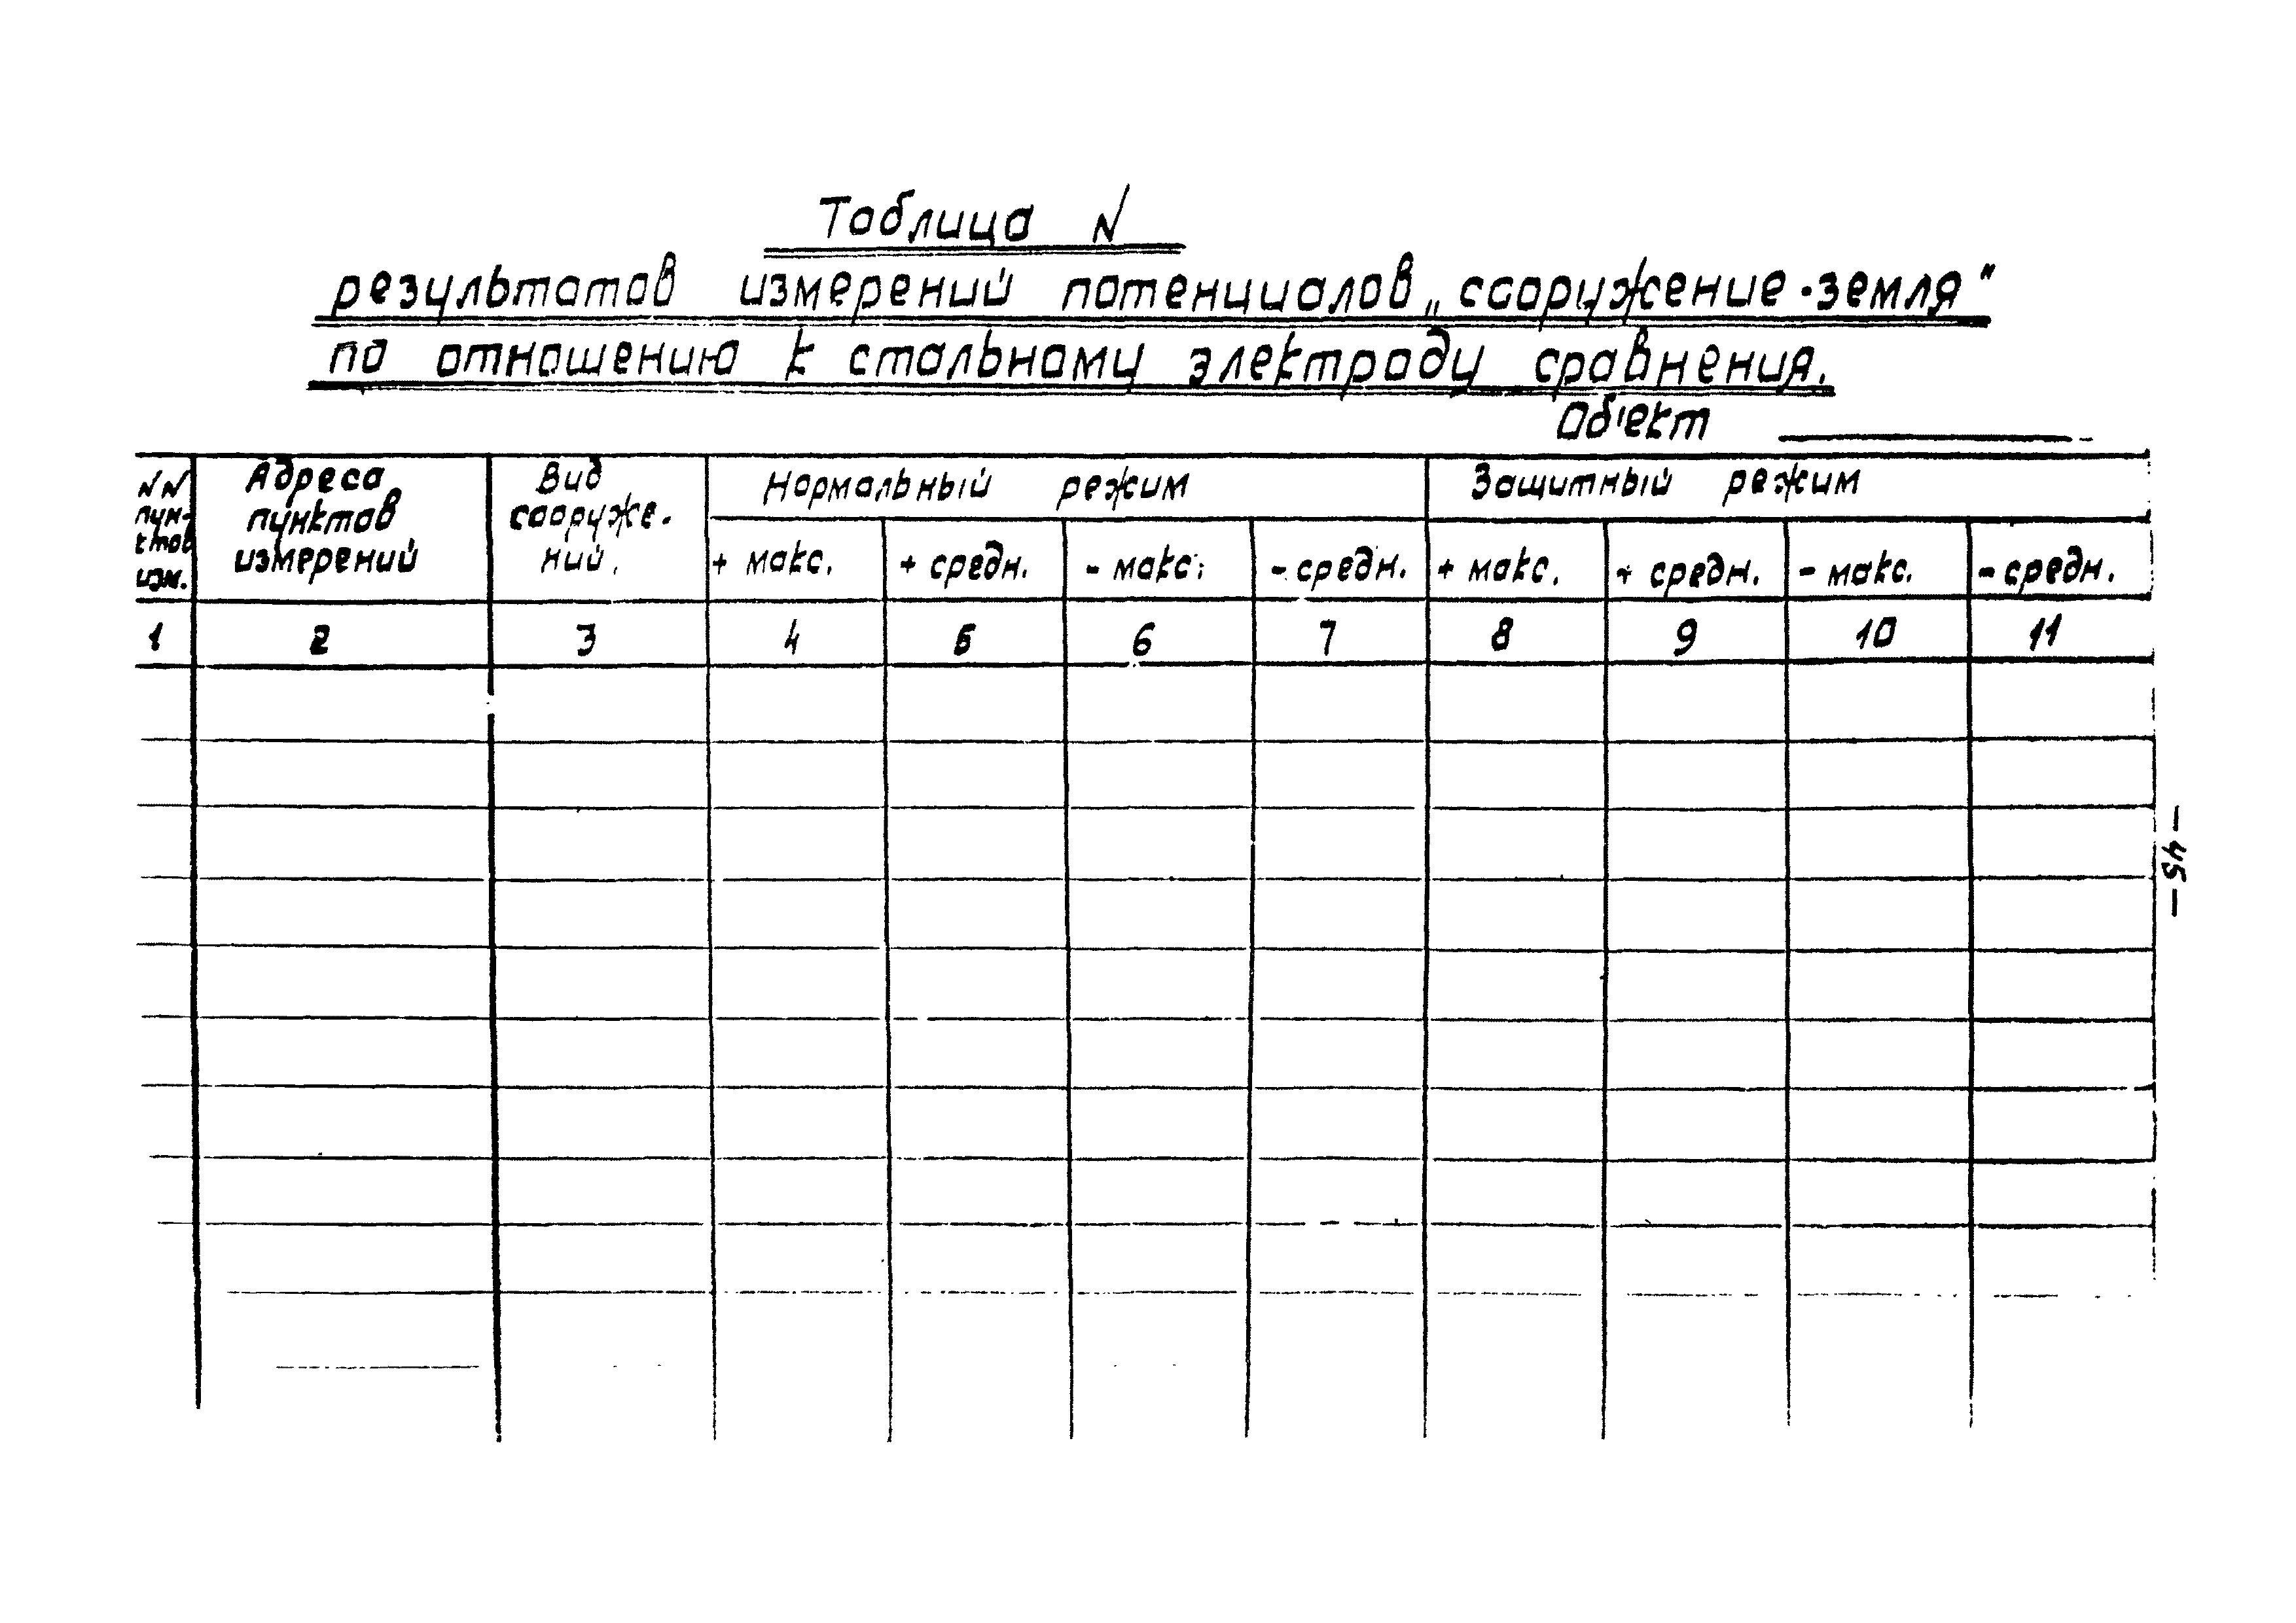 Таблица N
результатов измерений потенциалов „сооружение-земля"
по отношению к стальному электроду сравнения.
Об'ект
NN пун- ктов изм.
Адреса пунктов измерений
Вид сооруже- ний.
Нормальный режим
Защитный режим
+ макс. + средн. - макс. - средн. + макс. + средн. - макс. - средн.
1 2 3 4 5 6 7 8 9 10 11
- 45 -